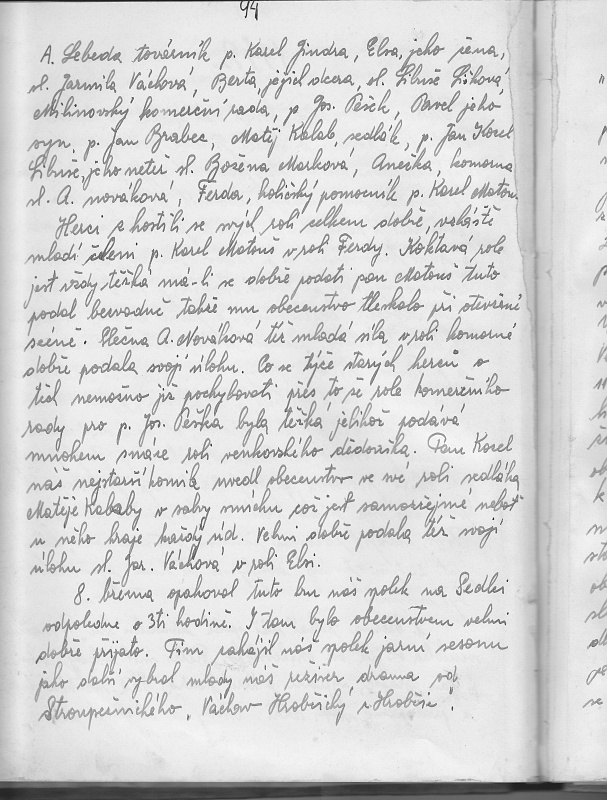 94
A. Lebeda továrník p. Karel Jindra, Elsa, jeho žena,
sl. Jarmila Váchová, Berta, jejich dcera, sl. Libuše Lišková
Milinovský komerční rada, p. Jos. Pešek, Pavel jeho
syn, p. Jan Brabec, Matěj Kalab, sedlák, p. Jan Korel
Libuše, jeho neteř sl. Božena Marková, Anežka, komorna
sl. A. nováková, Ferda, holičský pomocník p. Karel Matouš
Herci zhostili se svých rolí celkem dobře, zvláště
mladí členi p. Karel Matouš v roli Ferdy. Koktavá role
jest vždy těžká má-li se dobře podati pan Matouš tuto
podal bezvadně takže mu obecenstvo tleskalo při otevřené
scéně. Slečna A. Nováková též mladá síla v roli komorné
dobře podala svoji úlohu. Co se týče starých herců o
těch nemožno již pochybovati přes to že role komerčního
rady pro p. Jos. Peška byla těžká jelikož podává
mnohem snáze roli venkovského dědouška. Pan Korel
náš nejstarší komik uvedl obecenstvo ve své roli sedláka
Matěje Kalaby v salvy smíchu což jest samozřejmé neboť
u něho hraje každý úd. Velmi dobře podala též svoji
úlohu sl. Jar. Váchová v roli Elsi.
8. března opakoval tuto hru náš spolek na Sedlci
odpoledne o 3tí hodině. I tam bylo obecenstvem velmi
dobře přijato. Tím zahájil náš spolek jarní sesonu
jako další vybral mladý náš režisér drama od
Stroupežnického "Václav Hrobčický z Hrobčic".